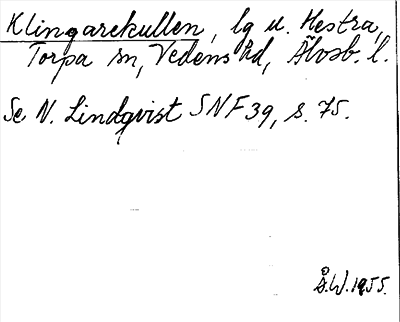 Klingarekullen, lg u. Hestra,
Torpa sn, Vedens hd, Älvsb. l.
Se N. Lindqvist SNF 39, s. 75.
Å.W. 1955.